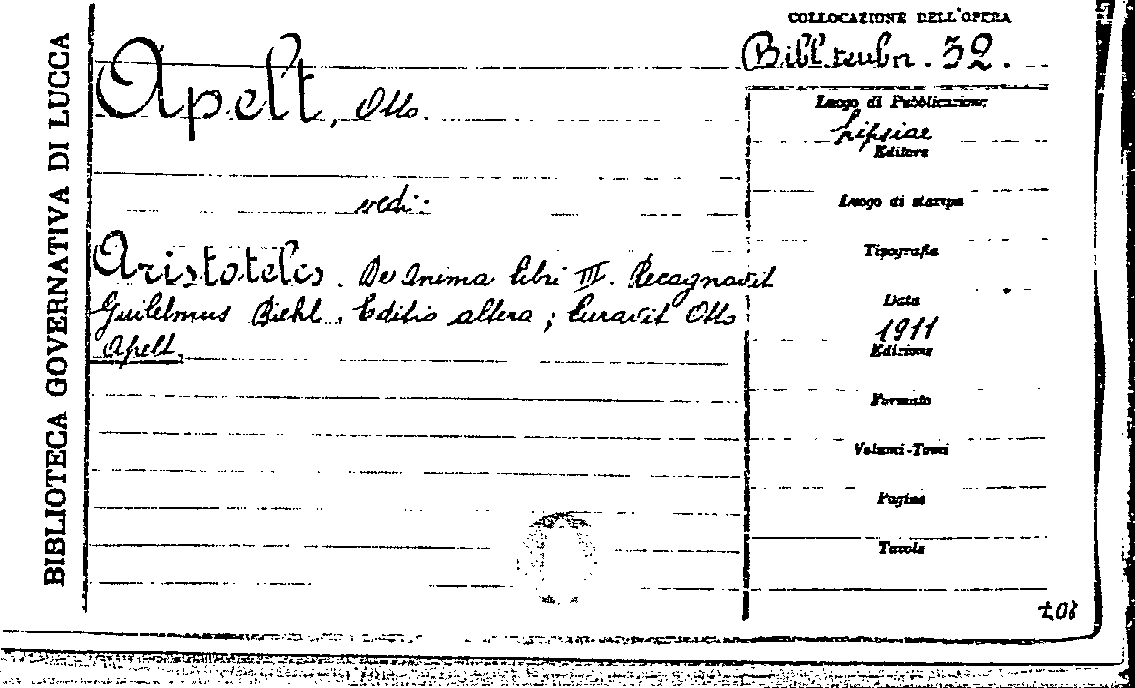 BIBLIOTECA GOVERNATIVA DI LUCCA
COLLOCAZIONE DELL'OPERA
Bibl. teubn. 32.
Apelt, Otto.
vedi:
Aristoteles. De Anima libri III. Recagnavit
Guilelmus Biehl. Editio altera; Curavit Otto
Apelt.
Luogo di Pubblicazione
Lipsiae
Editore
Luogo di stampa
Tipografia
Data
1911
Edizione
Formato
Volumi-Tomi
Pagine
Tavole